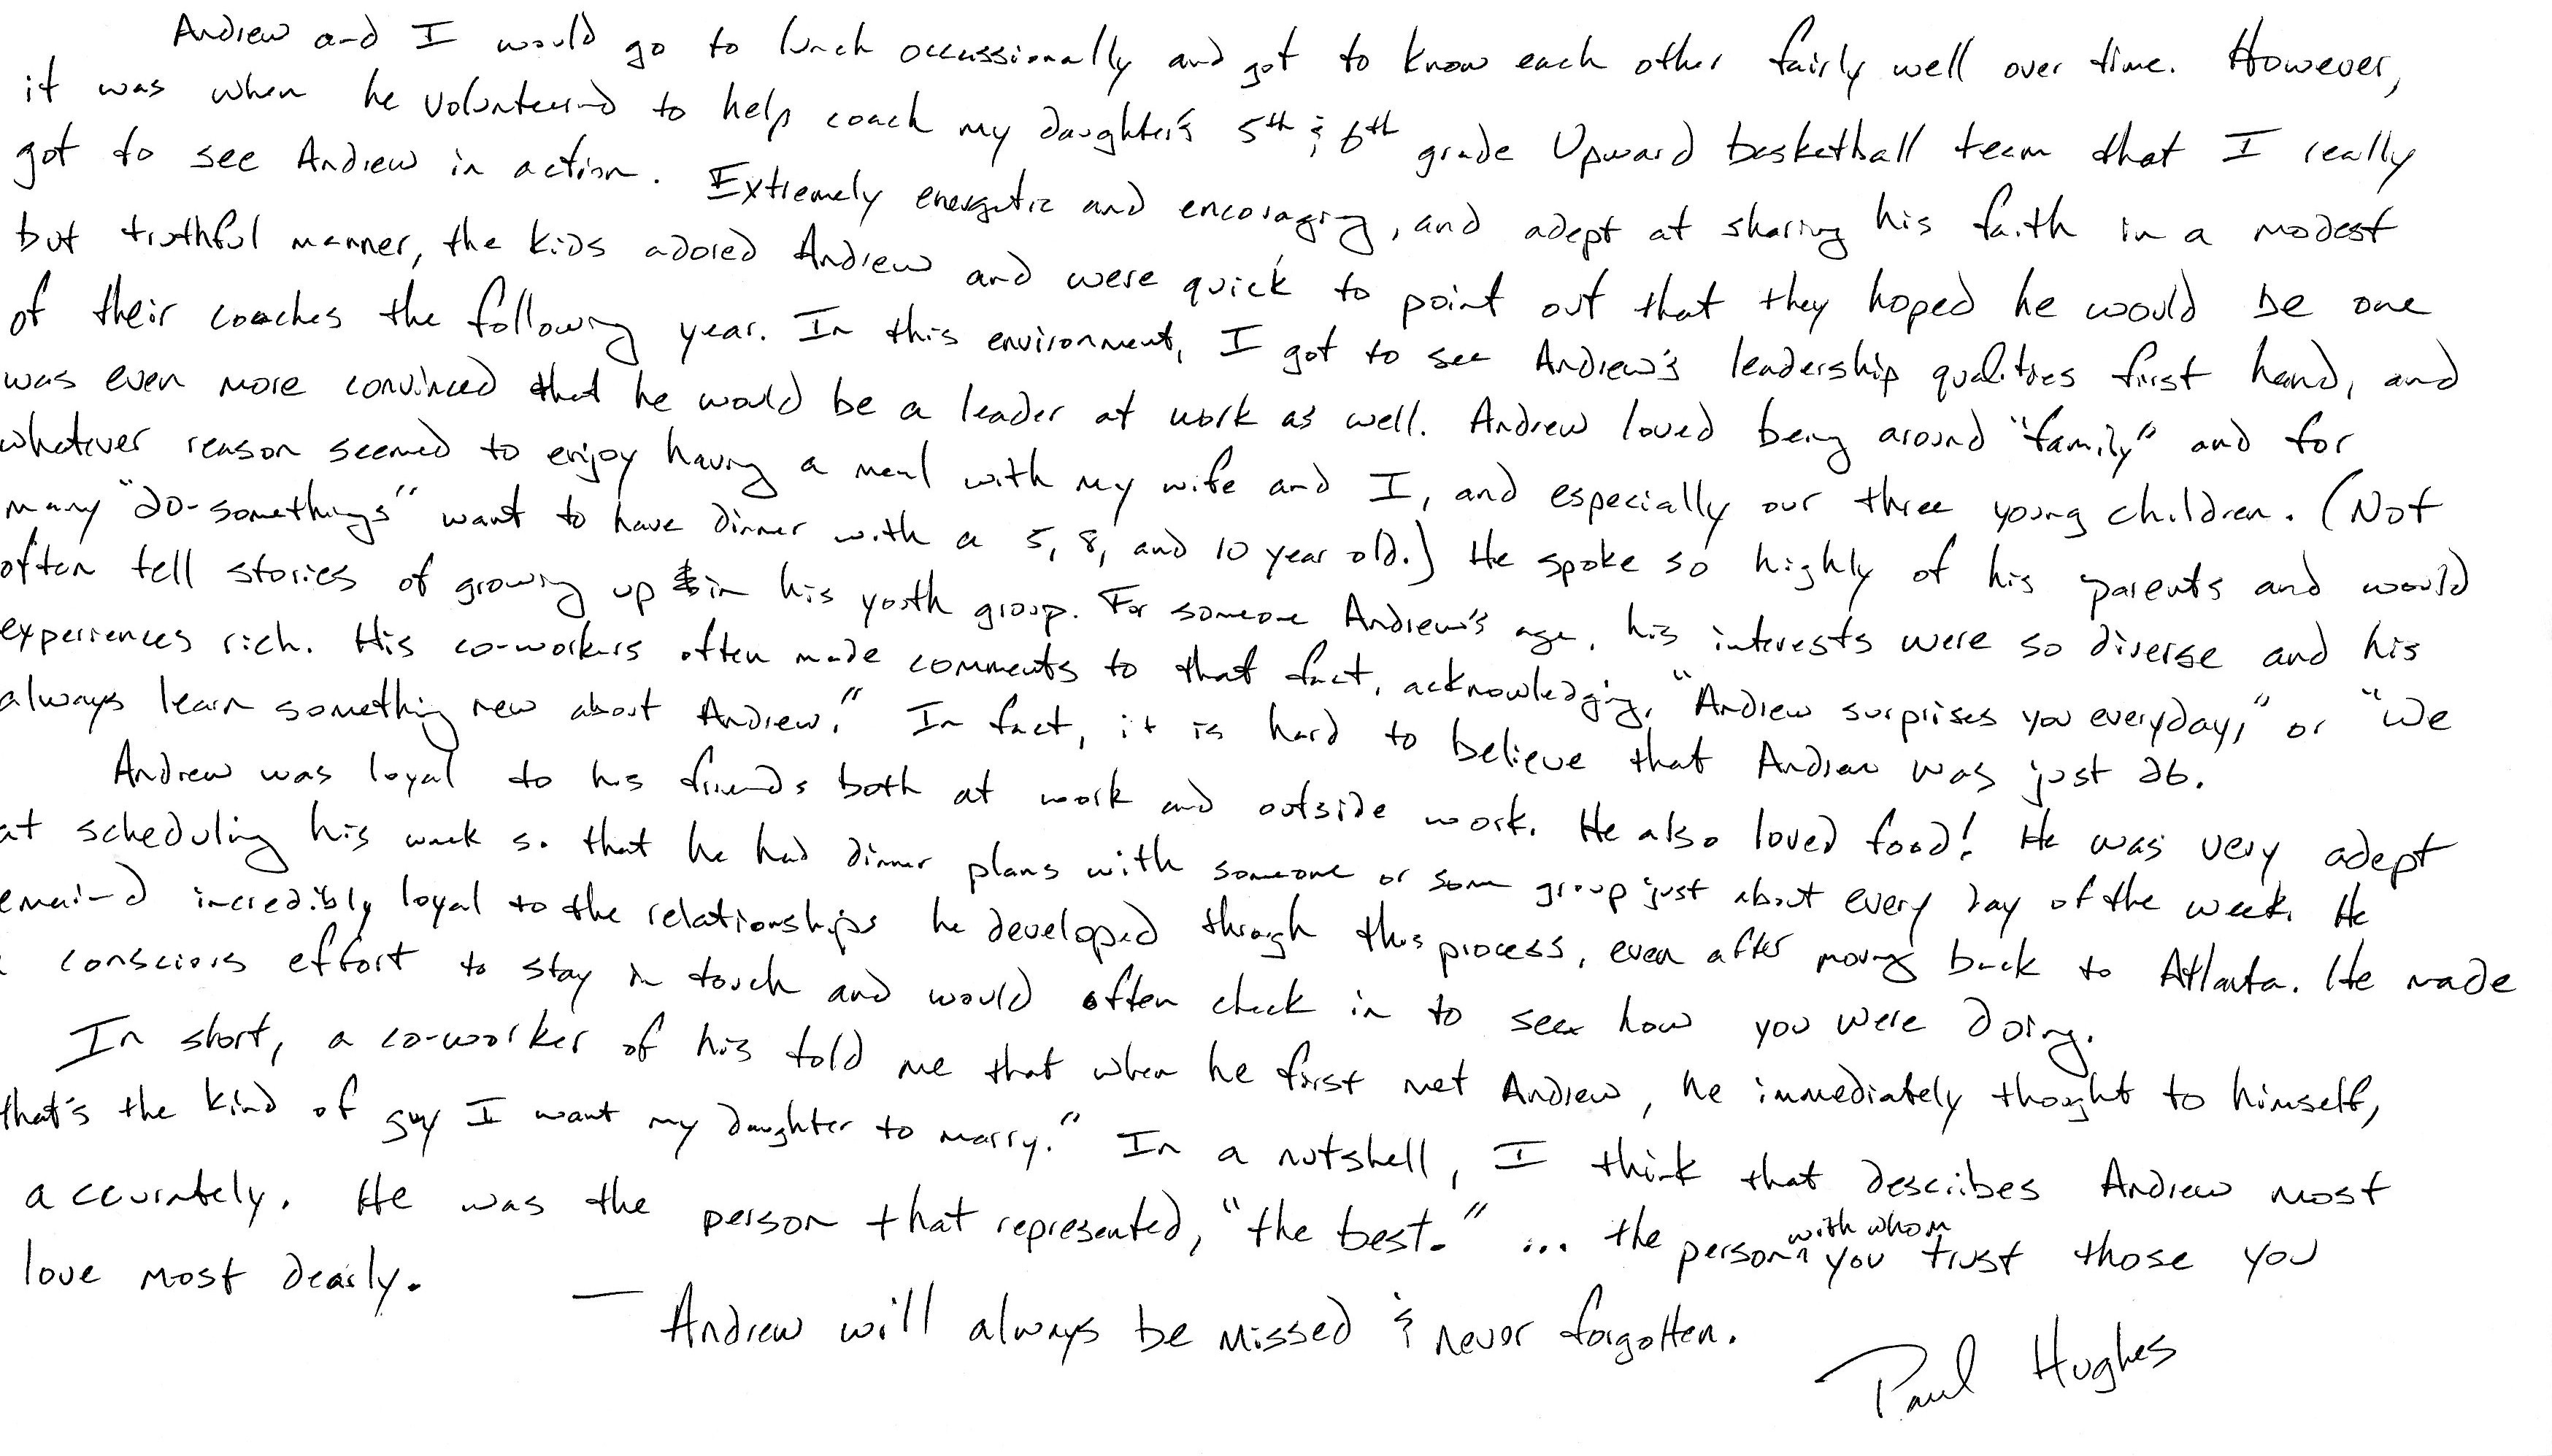 Andrew and I would go to lunch occussionally and got to know each other fairly well over time. However,
it was when he volunteered to help coach my daughter's 5th & 6th grade Upward basketball team that I really
got to see Andrew in action. Extremely energetic and encouraging, and adept at sharing his faith in a modest
but truthful manner, the kids adored Andrew and were quick to point out that they hoped he would be one
of their coaches the following year. In this environment, I got to see Andrew's leadership qualities first hand, and
was even more convinced that he would be a leader at work as well. Andrew loved being around "family" and for
whatever reason seemed to enjoy having a meal with my wife and I, and especially our three young children. (Not
many "20-somethings" want to have dinner with a 5, 8, and 10 year old.) He spoke so highly of his parents and would
often tell stories of growing up in his youth group. For someone Andrew's age, his interests were so diverse and his
experiences rich. His co-workers often made comments to that fact, acknowledging, "Andrew surprises you everyday," or "We
always learn something new about Andrew." In fact, it is hard to believe that Andrew was just 26.
Andrew was loyal to his friends both at work and outside work. He also loved food! He was very adept
at scheduling his week so that he had dinner plans with someone or some group just about every day of the week. He
emained incredibly loyal to the relationships he developed through this process, even after moving back to Atlanta. He made
conscious effort to stay in touch and would often check in to see how you were doing.
In short, a co-worker of his told me that when he first met Andrew, he immediately thought to himself,
that's the kind of guy I want my daughter to marry." In a nutshell, I think that describes Andrew most
accurately. He was the person that represented, "the best." ... the person with whom you trust those you
love most dearly.
— Andrew will always be missed & never forgotten.
Paul Hughes